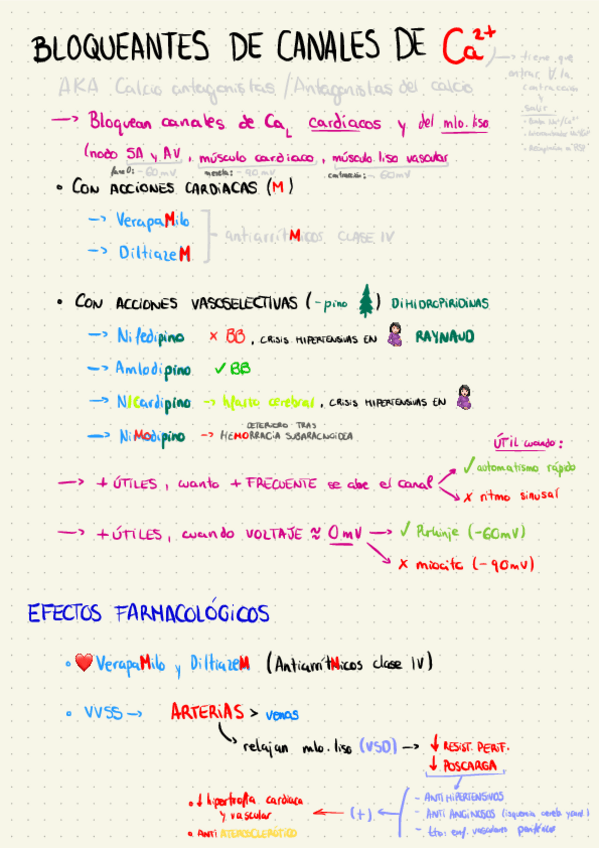 BLOQUEANTES DE CANALES DE Ca²⁺
→ tiene que
entrar
contracción
AKA Calcio antagonistas / Antagonistas del calcio
→ Bloquean canales de Ca_L cardíacos y del mlo. liso
(nodo SA y AV, músculo cardiaco, músculo liso vascular
fase 0: -60mV meseta: -90mV contracción: -60mV
• CON ACCIONES CARDÍACAS (M)
→ VerapaMilo
→ DiltiazeM
antiarrítMicos CLASE IV
• CON ACCIONES VASOSELECTIVAS (-pino) DIHIDROPIRIDINAS
→ Nifedipino x BB, CRISIS HIPERTENSIVAS EN RAYNAUD
→ Amlodipino ✓ BB
→ NICardipino → Infarto cerebral, CRISIS HIPERTENSIVAS EN
DETERIORO TRAS
→ NiMOdipino → HEMORRAGIA SUBARACNOIDEA
ÚTIL cuando:
→ + ÚTILES, cuanto + FRECUENTE se abe el canal
✓ automatismo rápido
x ritmo sinusal
→ + ÚTILES, cuando VOLTAJE ≈ 0mV → ✓ Purkinje (-60mV)
x miocito (-90mV)
EFECTOS FARMACOLÓGICOS
• ❤️ VerapaMilo y DiltiazeM (AntiarrítMicos clase IV)
• VVSS → ARTERIAS > venas
relajan mlo. liso (VSD) → ↓ RESIST. PERIF.
↓ POSCARGA
- ANTIHIPERTENSIVOS
- ANTIANGINOSOS (isquemia cereb y card.)
- tto. enf. vasculares periféricos
(+)
• ↓ hipertrofia cardiaca
y vascular
• ANTI ATEROSCLERÓTICO